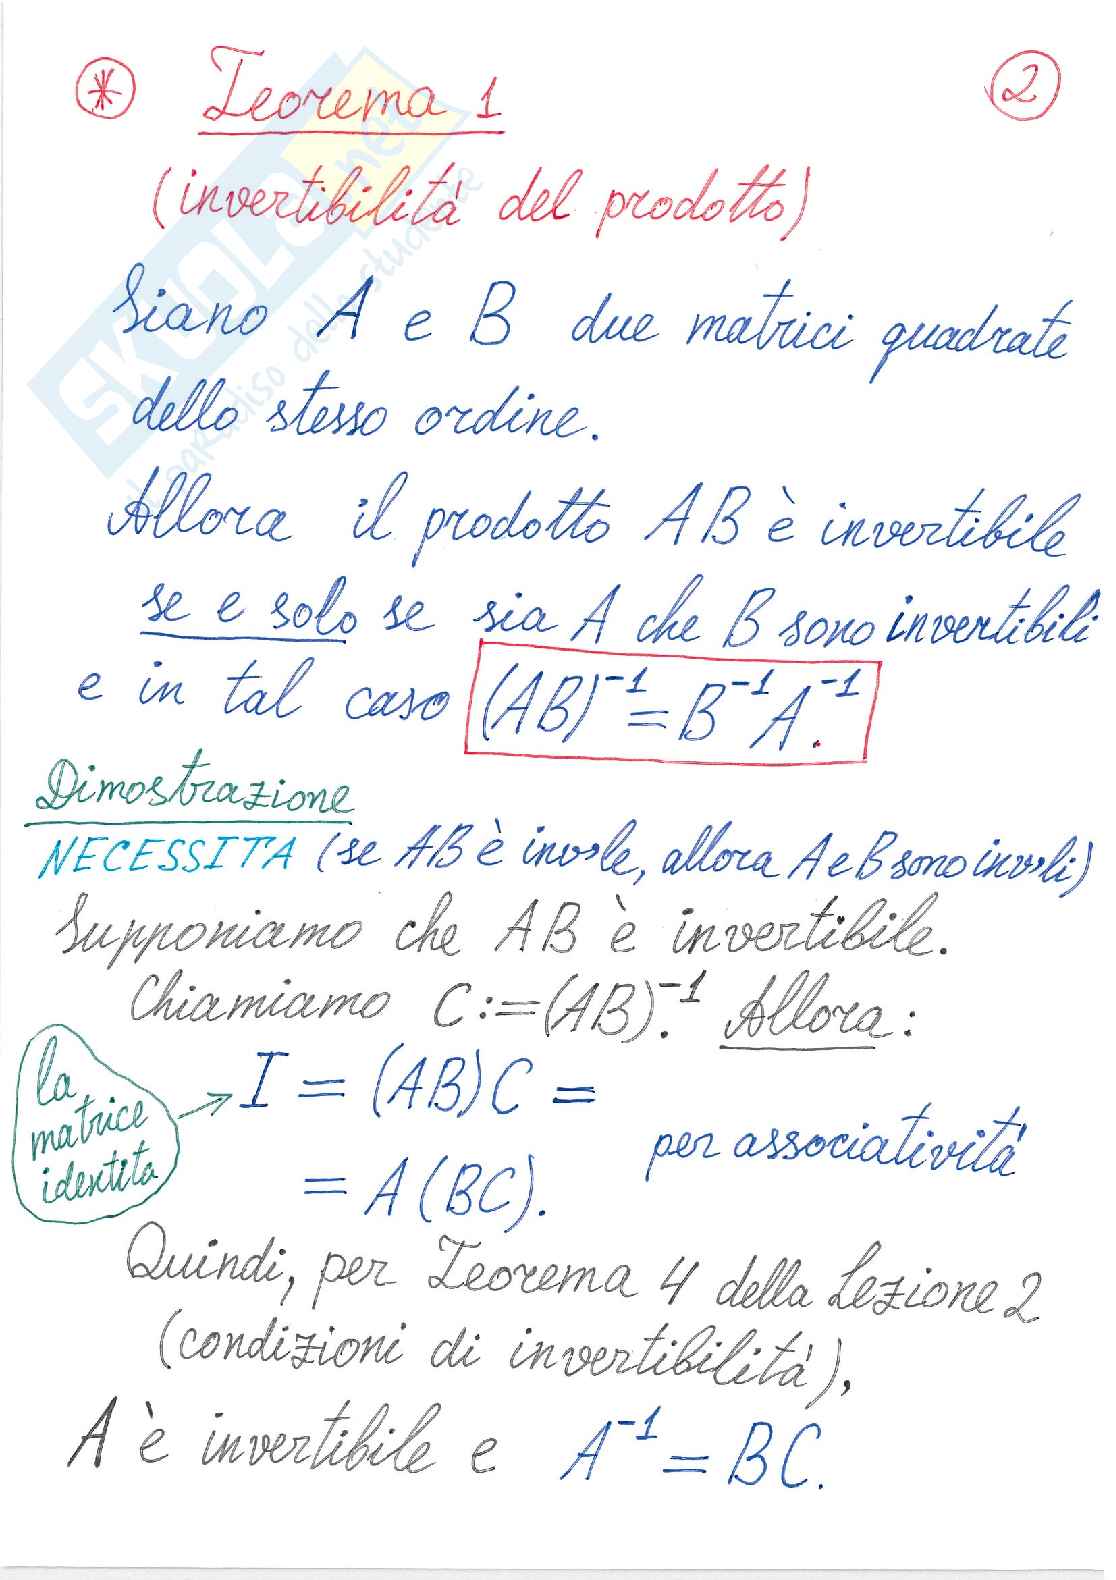 * Teorema 1 2
(invertibilità del prodotto)
Siano A e B due matrici quadrate
dello stesso ordine.
Allora il prodotto AB è invertibile
se e solo se sia A che B sono invertibili
e in tal caso (AB)⁻¹ = B⁻¹A⁻¹.
Dimostrazione
NECESSITA (se AB è inv-le, allora A e B sono inv-li)
Supponiamo che AB è invertibile.
Chiamiamo C:=(AB)⁻¹. Allora:
la
matrice
identita
I = (AB)C =
per associatività
= A(BC).
Quindi, per Teorema 4 della Lezione 2
(condizioni di invertibilità),
A è invertibile e A⁻¹ = BC.
SKUOLA.net
il paradiso dello studente